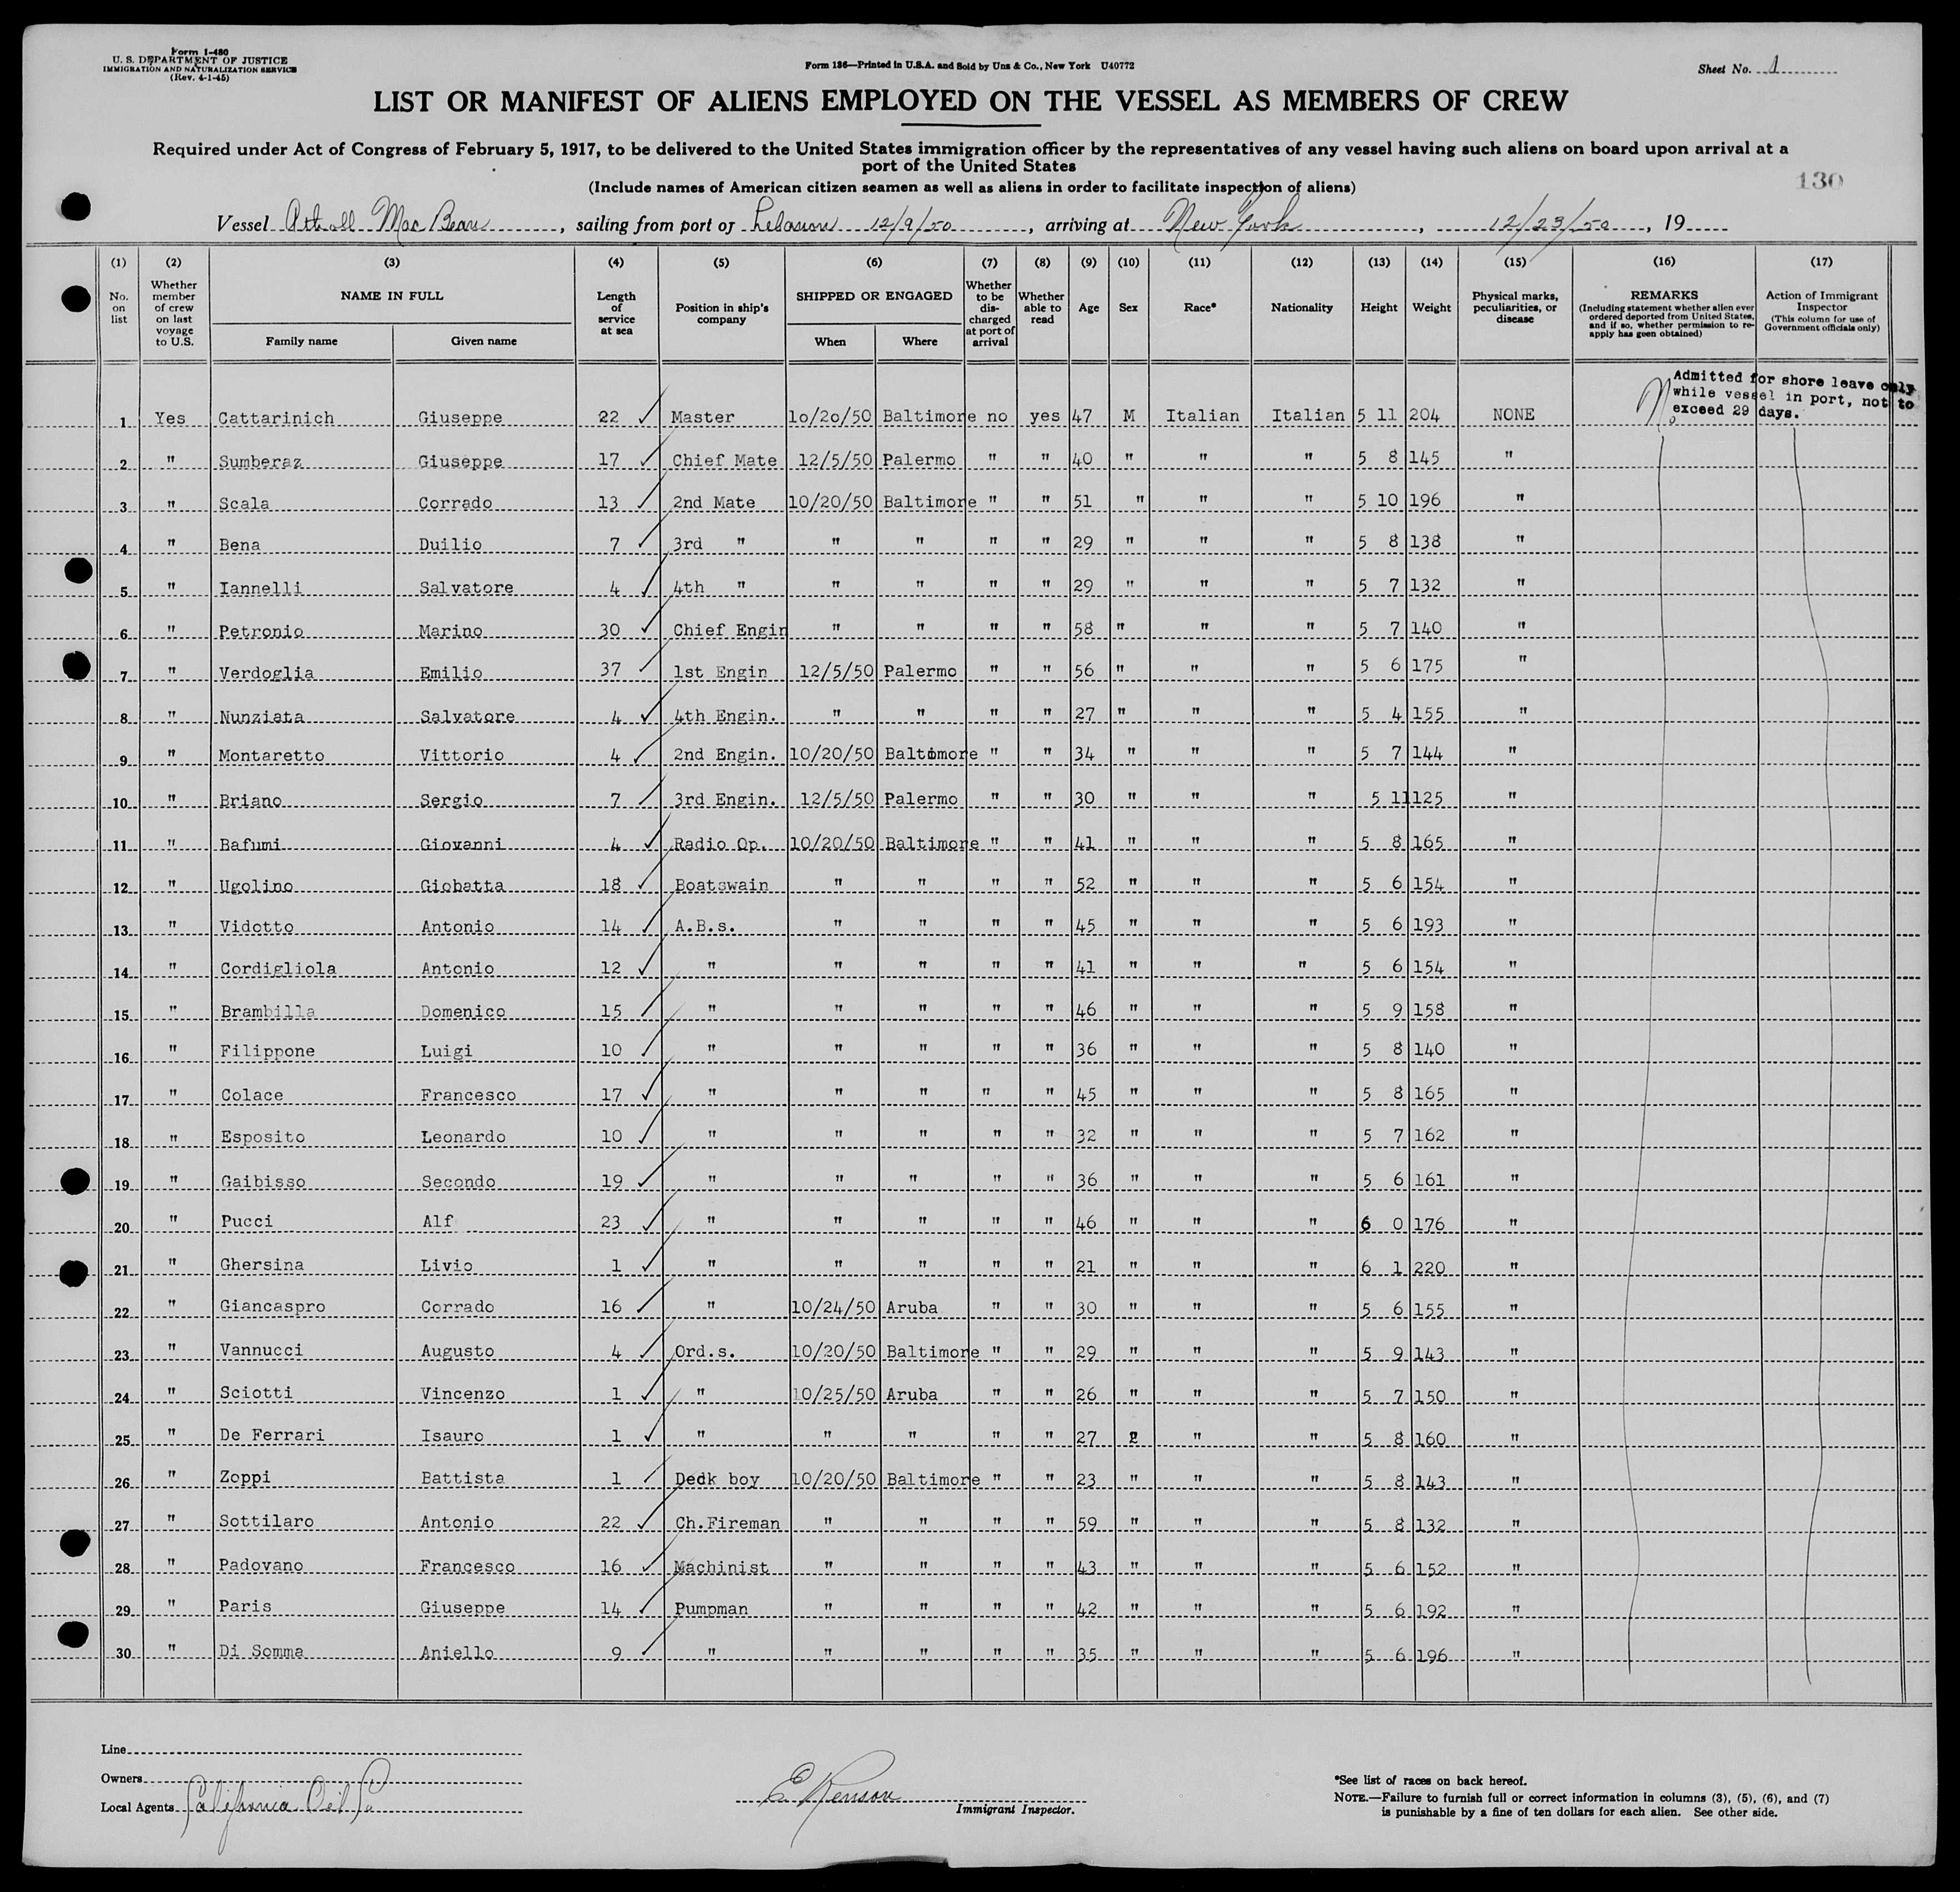 Form I-480
U. S. DEPARTMENT OF JUSTICE
IMMIGRATION AND NATURALIZATION SERVICE
(Rev. 4-1-45)
Form 136—Printed in U.S.A. and Sold by Unz & Co., New York U40772
Sheet No. 1
LIST OR MANIFEST OF ALIENS EMPLOYED ON THE VESSEL AS MEMBERS OF CREW
Required under Act of Congress of February 5, 1917, to be delivered to the United States immigration officer by the representatives of any vessel having such aliens on board upon arrival at a
port of the United States
(Include names of American citizen seamen as well as aliens in order to facilitate inspection of aliens)
130
Vessel Atholl MacBean, sailing from port of Lebanon 12/9/50, arriving at New York, 12/23/50, 19
(1) (2) (3) (4) (5) (6) (7) (8) (9) (10) (11) (12) (13) (14) (15) (16) (17)
No. on list Whether member of crew on last voyage to U.S. NAME IN FULL Family name Given name Length of service at sea Position in ship's company SHIPPED OR ENGAGED When Where Whether to be discharged at port of arrival Whether able to read Age Sex Race* Nationality Height Weight Physical marks, peculiarities, or disease REMARKS (Including statement whether alien ever ordered deported from United States, and if so, whether permission to reapply has geen obtained) Action of Immigrant Inspector (This column for use of Government officials only)
Admitted for shore leave only
while vessel in port, not to
exceed 29 days.
1 Yes Cattarinich Giuseppe 22 Master 1o/2o/50 Baltimore no yes 47 M Italian Italian 5 11 204 NONE No
2 " Sumberaz Giuseppe 17 Chief Mate 12/5/50 Palermo " " 40 " " " 5 8 145 "
3 " Scala Corrado 13 2nd Mate 10/20/50 Baltimore " " 51 " " " 5 10 196 "
4 " Bena Duilio 7 3rd " " " " " 29 " " " 5 8 138 "
5 " Iannelli Salvatore 4 4th " " " " " 29 " " " 5 7 132 "
6 " Petronio Marino 30 Chief Engin " " " " 58 " " " 5 7 140 "
7 " Verdoglia Emilio 37 1st Engin 12/5/50 Palermo " " 56 " " " 5 6 175 "
8 " Nunziata Salvatore 4 4th Engin. " " " " 27 " " " 5 4 155 "
9 " Montaretto Vittorio 4 2nd Engin. 10/20/50 Baltimore " " 34 " " " 5 7 144 "
10 " Briano Sergio 7 3rd Engin. 12/5/50 Palermo " " 30 " " " 5 11 125 "
11 " Bafumi Giovanni 4 Radio Op. 10/20/50 Baltimore " " 41 " " " 5 8 165 "
12 " Ugolino Giobatta 18 Boatswain " " " " 52 " " " 5 6 154 "
13 " Vidotto Antonio 14 A.B.s. " " " " 45 " " " 5 6 193 "
14 " Cordigliola Antonio 12 " " " " " 41 " " " 5 6 154 "
15 " Brambilla Domenico 15 " " " " " 46 " " " 5 9 158 "
16 " Filippone Luigi 10 " " " " " 36 " " " 5 8 140 "
17 " Colace Francesco 17 " " " " " 45 " " " 5 8 165 "
18 " Esposito Leonardo 10 " " " " " 32 " " " 5 7 162 "
19 " Gaibisso Secondo 19 " " " " " 36 " " " 5 6 161 "
20 " Pucci Alf 23 " " " " " 46 " " " 6 0 176 "
21 " Ghersina Livio 1 " " " " " 21 " " " 6 1 220 "
22 " Giancaspro Corrado 16 " 10/24/50 Aruba " " 30 " " " 5 6 155 "
23 " Vannucci Augusto 4 Ord.s. 10/20/50 Baltimore " " 29 " " " 5 9 143 "
24 " Sciotti Vincenzo 1 " 10/25/50 Aruba " " 26 " " " 5 7 150 "
25 " De Ferrari Isauro 1 " " " " " 27 2 " " 5 8 160 "
26 " Zoppi Battista 1 Deck boy 10/20/50 Baltimore " " 23 " " " 5 8 143 "
27 " Sottilaro Antonio 22 Ch.Fireman " " " " 59 " " " 5 8 132 "
28 " Padovano Francesco 16 Machinist " " " " 43 " " " 5 6 152 "
29 " Paris Giuseppe 14 Pumpman " " " " 42 " " " 5 6 192 "
30 " Di Somma Aniello 9 " " " " " 35 " " " 5 6 196 "
Line
Owners
Local Agents California Oil Co
E Renson
Immigrant Inspector.
*See list of races on back hereof.
NOTE.—Failure to furnish full or correct information in columns (3), (5), (6), and (7)
is punishable by a fine of ten dollars for each alien. See other side.